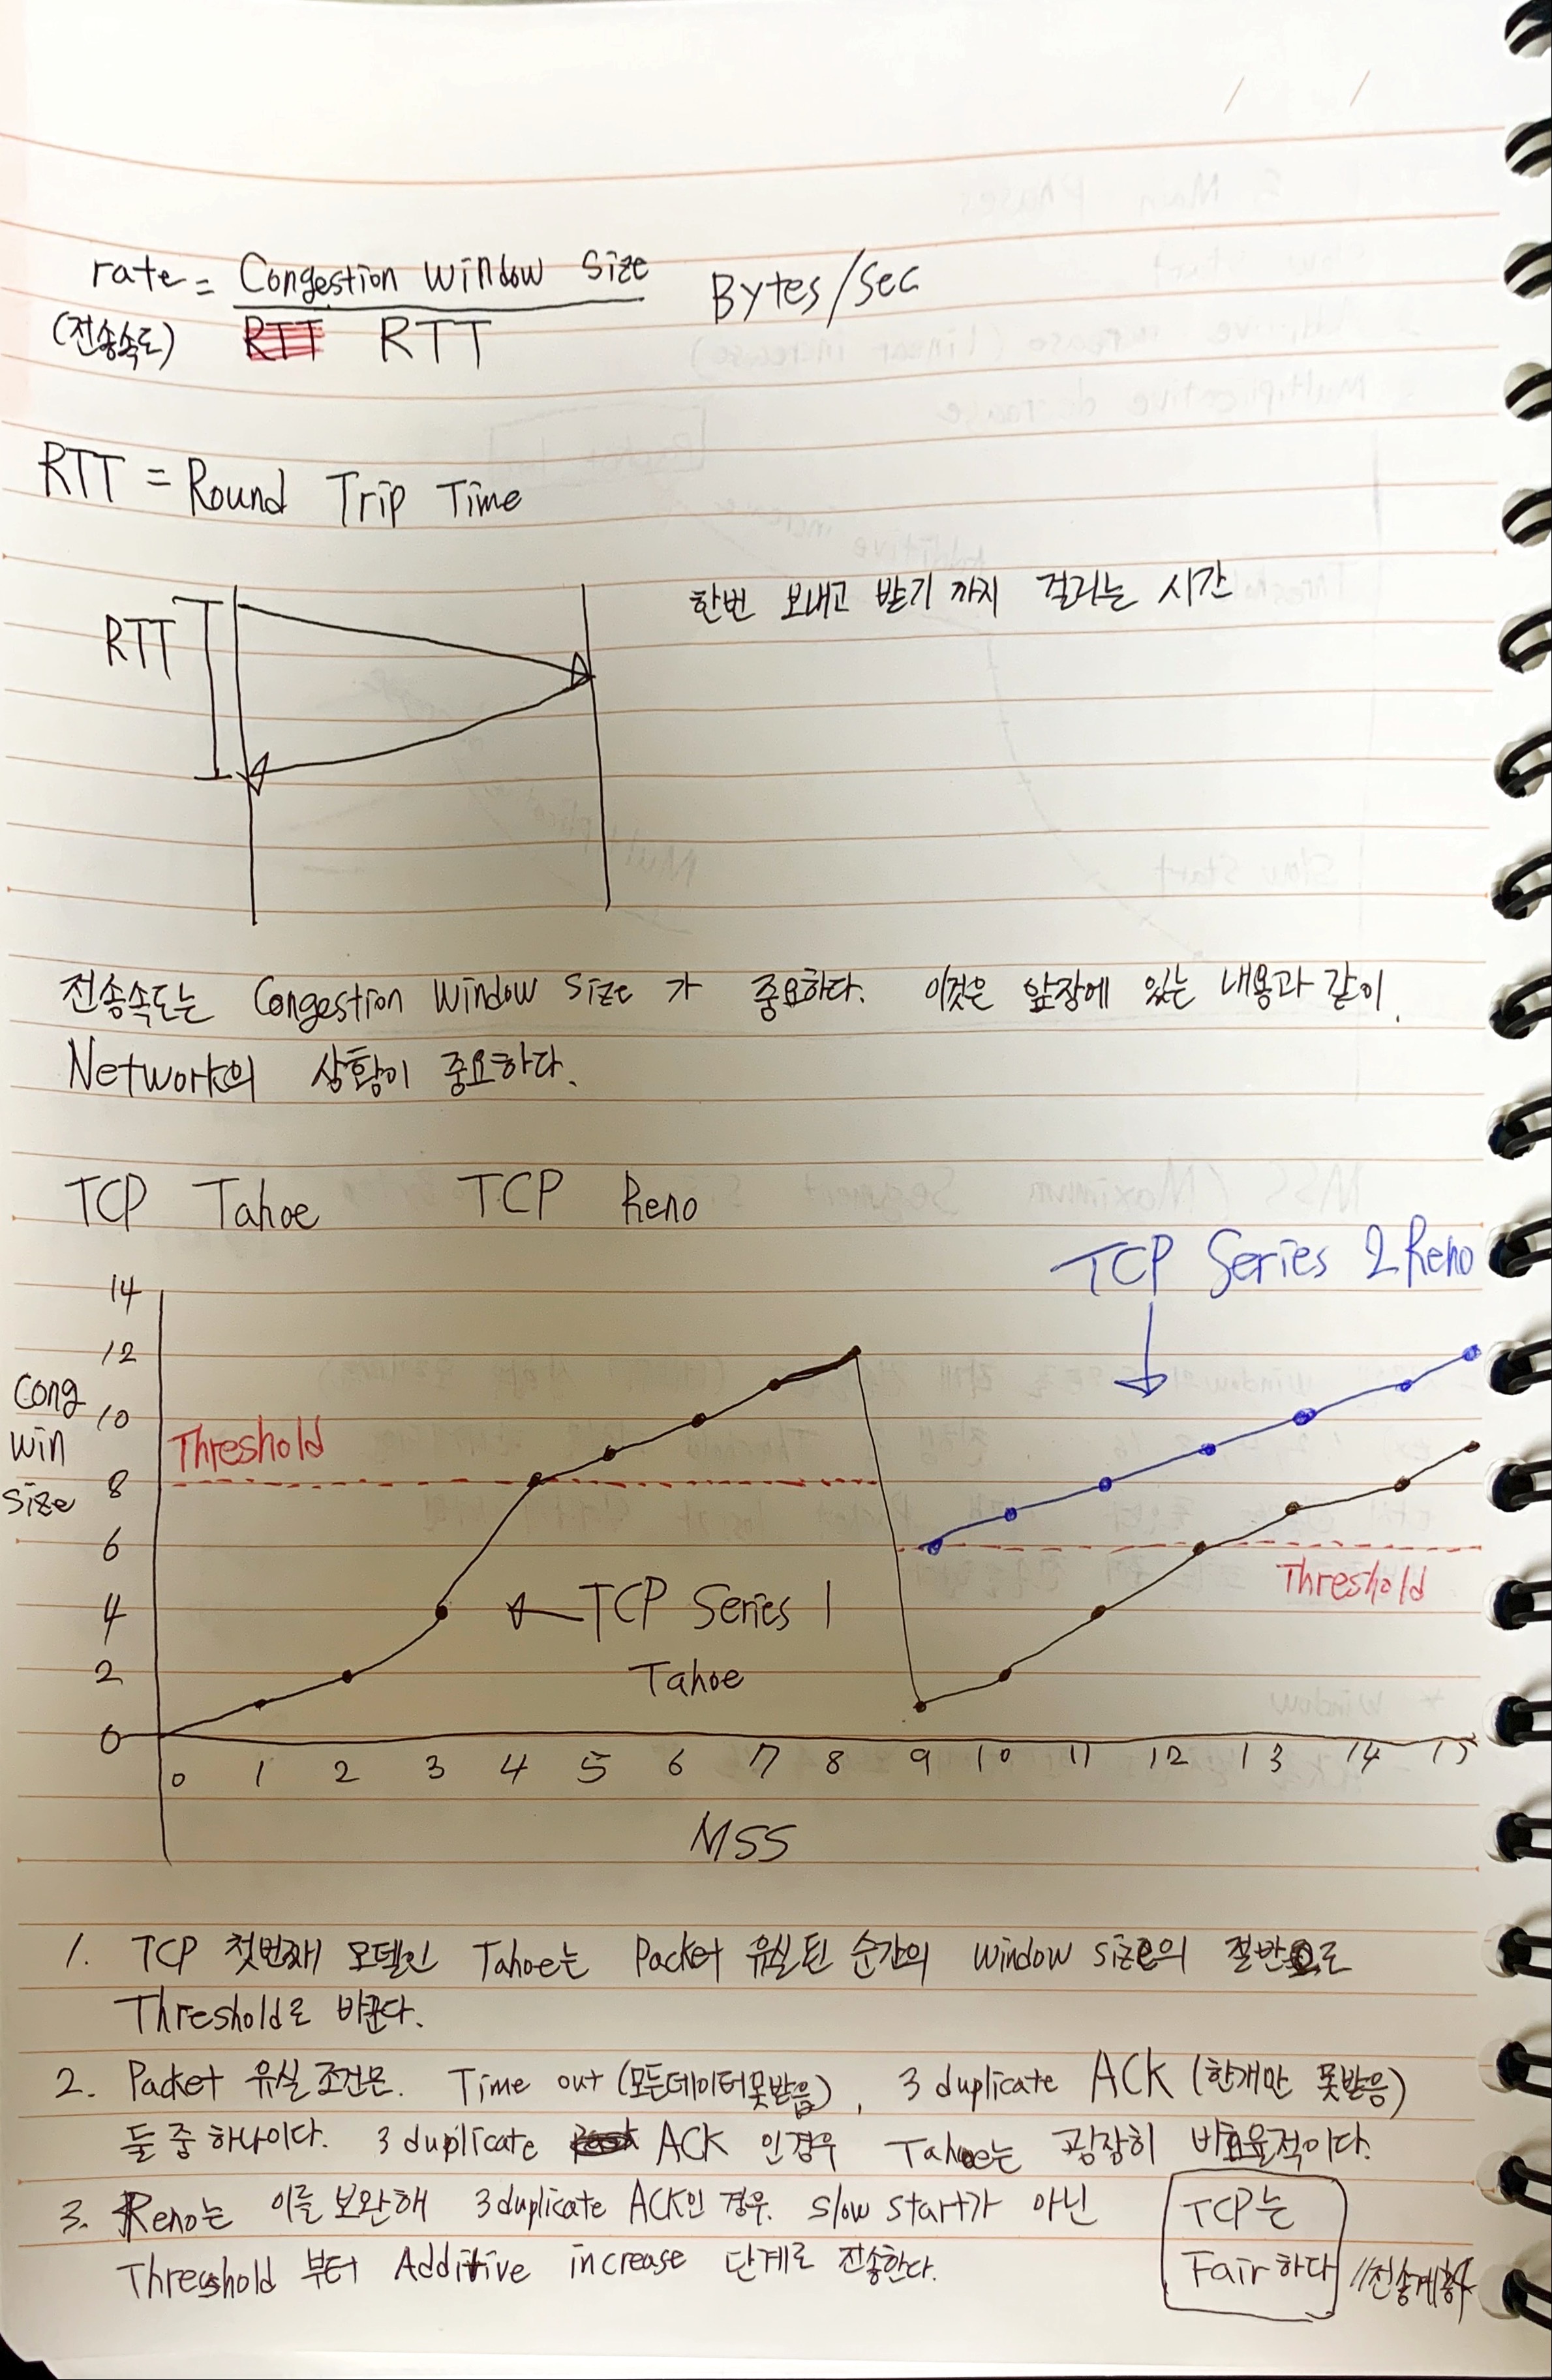 rate = Congestion window size Bytes/sec
(전송속도) RTT RTT
RTT = Round Trip Time
RTT
한번 보내고 받기 까지 걸리는 시간
전송속도는 Congestion window size 가 중요하다. 이것은 앞장에 있는 내용과 같이
Network의 상황이 중요하다.
TCP Tahoe TCP Reno
TCP Series 2 Reno
14
12
Cong
10
win
Threshold
8
size
6
Threshold
4
TCP Series 1
2
Tahoe
0
0 1 2 3 4 5 6 7 8 9 10 11 12 13 14 15
MSS
1. TCP 첫번째 모델인 Tahoe는 Packet 유실된 순간의 window size의 절반으로
Threshold로 바꾼다.
2. Packet 유실 조건은. Time out (모든데이터못받음), 3 duplicate ACK (한개만 못받음)
둘 중 하나이다. 3 duplicate ACK 인경우 Tahoe는 굉장히 비효율적이다.
3. Reno는 이를 보완해 3 duplicate ACK인 경우. slow start가 아닌
Threshold 부터 Additive increase 단계로 전송한다.
TCP는
Fair하다 //전송계층